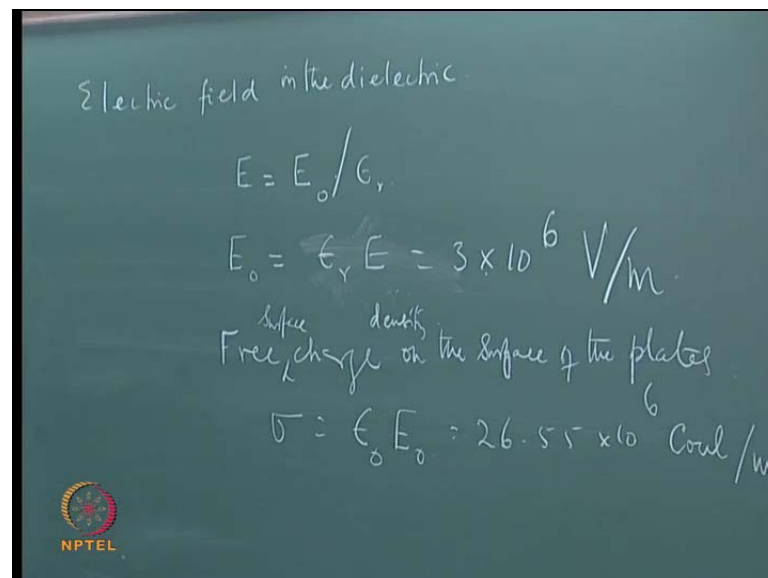 Electric field in the dielectric.
E = E₀/ϵᵣ.
E₀ = ϵᵣ E = 3 × 10⁶ V/m.
surface density
Free charge on the surface of the plates
σ = ϵ₀ E₀ = 26.55 × 10⁶ Coul/m
NPTEL